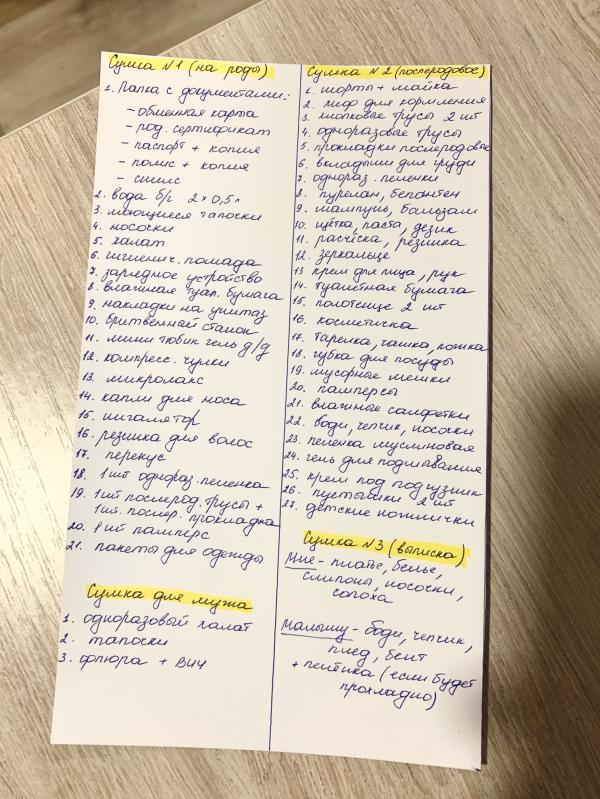 Сумка №1 (на роды)
1. Папка с документами:
- обменная карта
- род. сертификат
- паспорт + копия
- полис + копия
- снилс
2. вода б/г 2×0,5л
3. моющиеся тапочки
4. носочки
5. халат
6. гигиенич. помада
7. зарядное устройство
8. влажная туал. бумага
9. накладки на унитаз
10. бритвенный станок
11. мини тюбик гель д/д
12. компресс. чулки
13. микролакс
14. капли для носа
15. ингалятор
16. резинка для волос
17. перекус
18. 1 шт однораз. пеленка
19. 1 шт послерод. трусы +
1 шт. послер. прокладка
20. 1 шт памперс
21. пакеты для одежды
Сумка для мужа
1. одноразовый халат
2. тапочки
3. флюра + ВИЧ
Сумка №2 (послеродовое)
1. шорты + майка
2. лиф для кормления
3. хлопковые трусы 2 шт
4. одноразовые трусы
5. прокладки послеродовые
6. вкладыши для груди
7. однораз. пеленки
8. пурелан, бепантен
9. шампунь, бальзам
10. щётка, паста, дезик
11. расчёска, резинка
12. зеркальце
13. крем для лица, рук
14. туалетная бумага
15. полотенце 2 шт
16. косметичка
17. тарелка, чашка, ложка
18. губка для посуды
19. мусорные мешки
20. памперсы
21. влажные салфетки
22. боди, чепчик, носочки
23. пеленка муслиновая
24. гель для подмывания
25. крем под подгузник
26. пустышки 2 шт
27. детские ножнички
Сумка №3 (выписка)
Мне - платье, белье,
слипоны, носочки,
Малышу - боди, чепчик,
плед, бант
+ пинетки (если будет
прохладно)